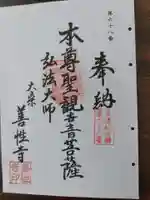 第六十八番
奉納
本尊聖観世音菩薩
弘法大師
大桑
善性寺